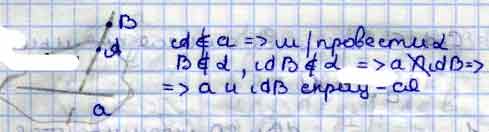 B
A
a
A ∉ a => м/провести α
B ∉ α, AB ∉ α => a ∦ AB =>
=> a и AB скрещ-ся